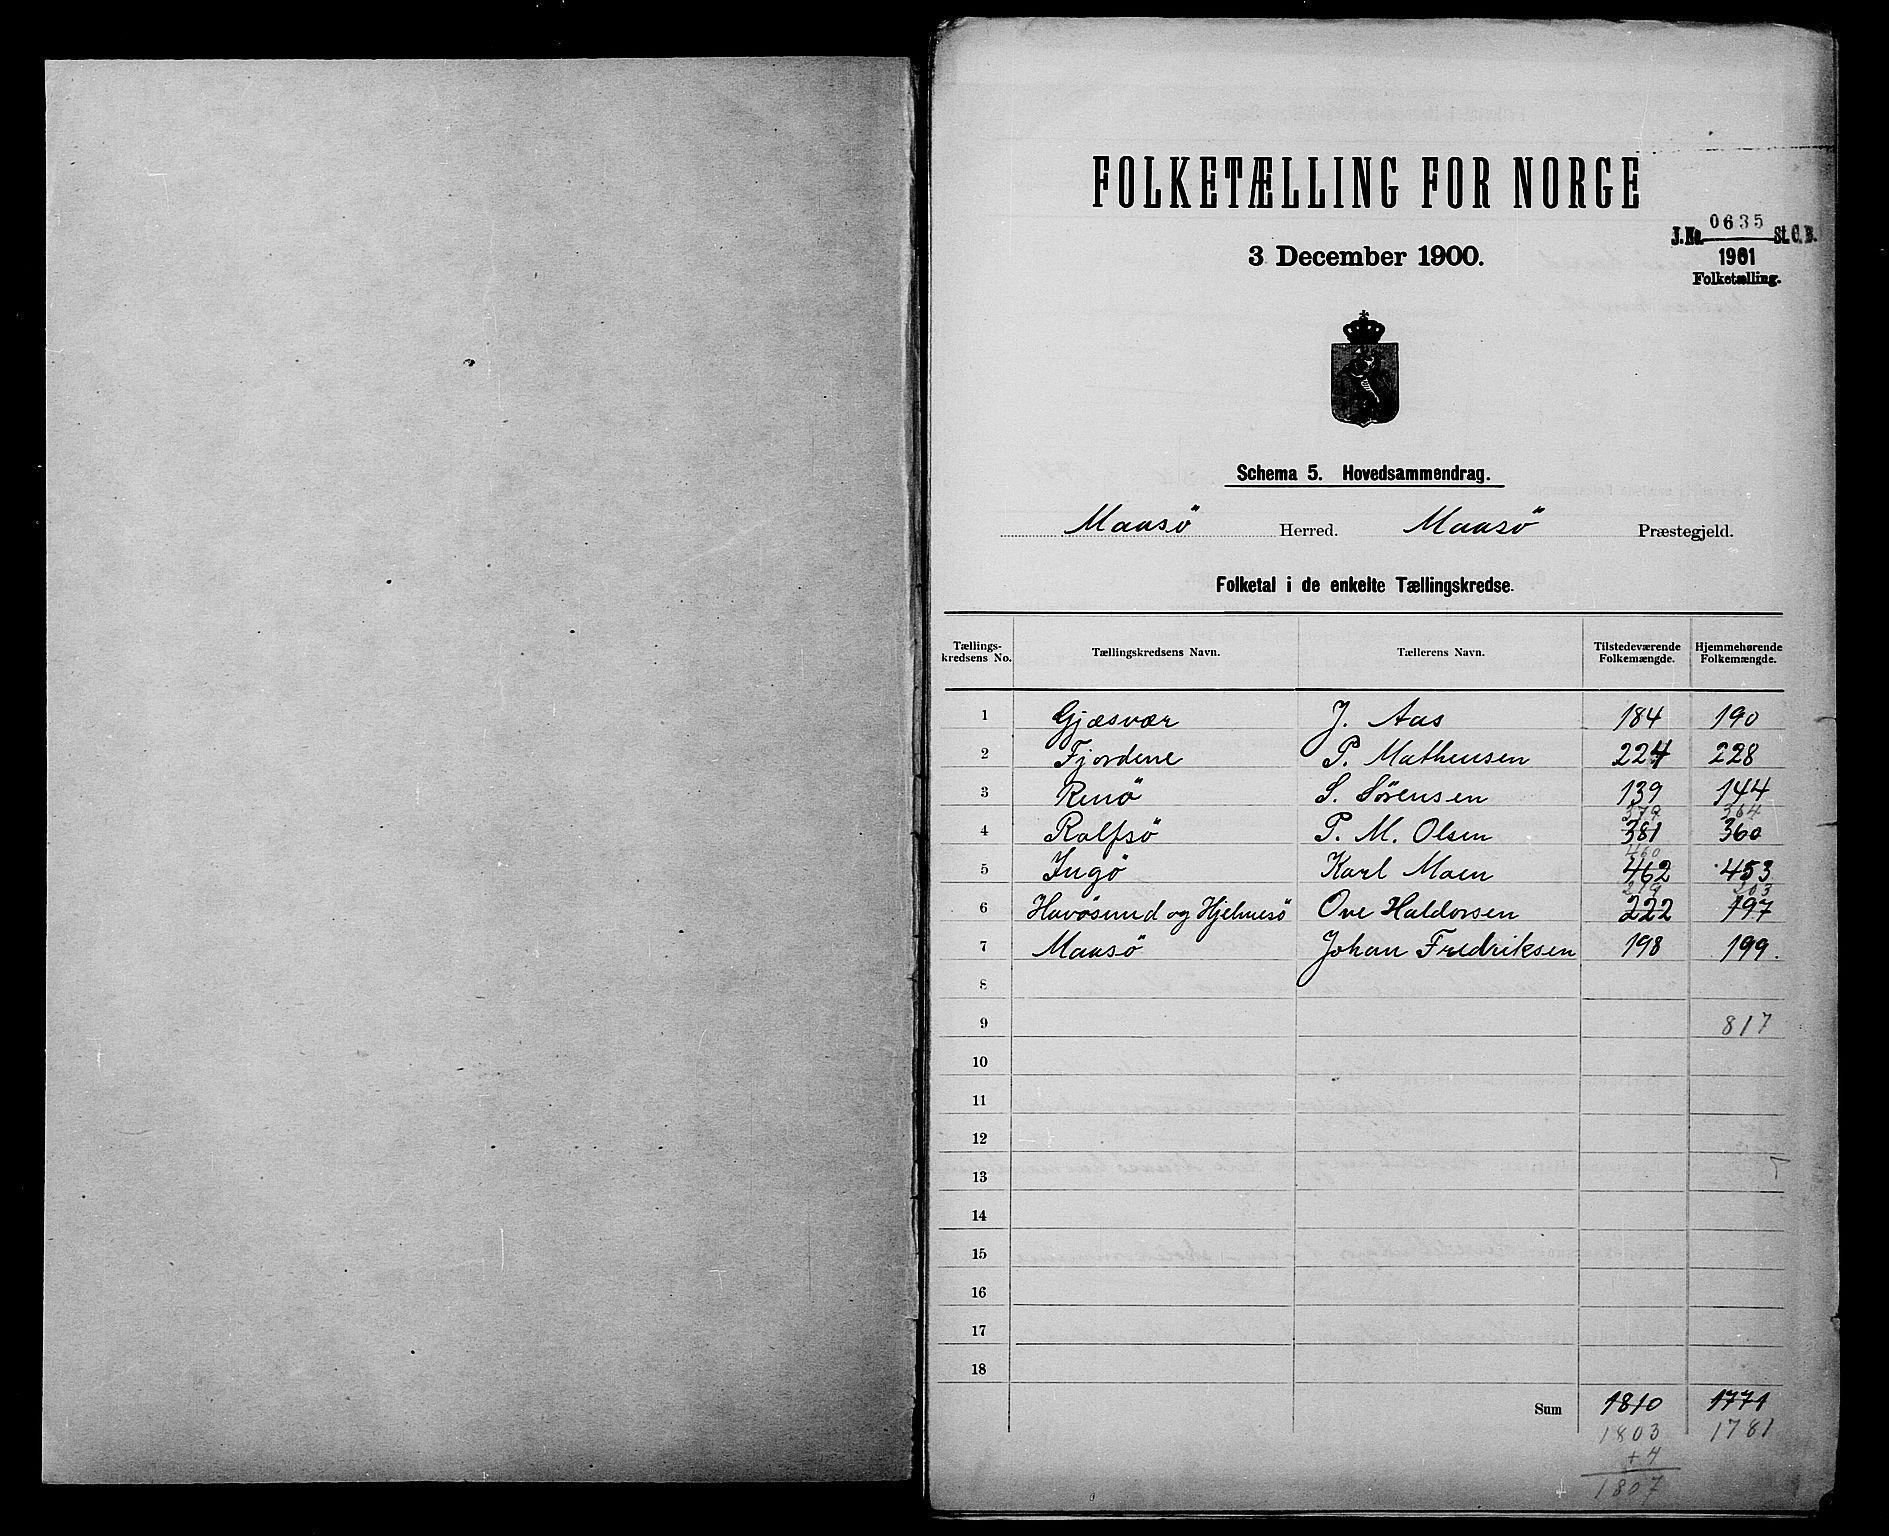 FOLKETÆLLING FOR NORGE
3 December 1900.
J.No. 0635 St. C. B.
1901
Folketælling.
Schema 5. Hovedsammendrag.
Maasö Herred. Maasö Præstegjeld.
Folketal i de enkelte Tællingskredse.
Tællings-kredsens No. Tællingskredsens Navn. Tællerens Navn. Tilstedeværende Folkemængde. Hjemmehørende Folkemængde.
1 Gjæsvær J. Aas 184 190
2 Fjordene P. Matheusen 224 228
3 Renö S. Sörensen 139 144
379 364
4 Rolfsö P. M. Olsen 381 360
460
5 Ingö Karl Moen 462 453
219 203
6 Havösund og Hjelmesö Ove Haldorsen 222 197
7 Maasö Johan Fredriksen 198 199.
8
9 817
10
11
12
13
14
15
16
17
18
Sum 1810 1771
1803 1781
+4
1807